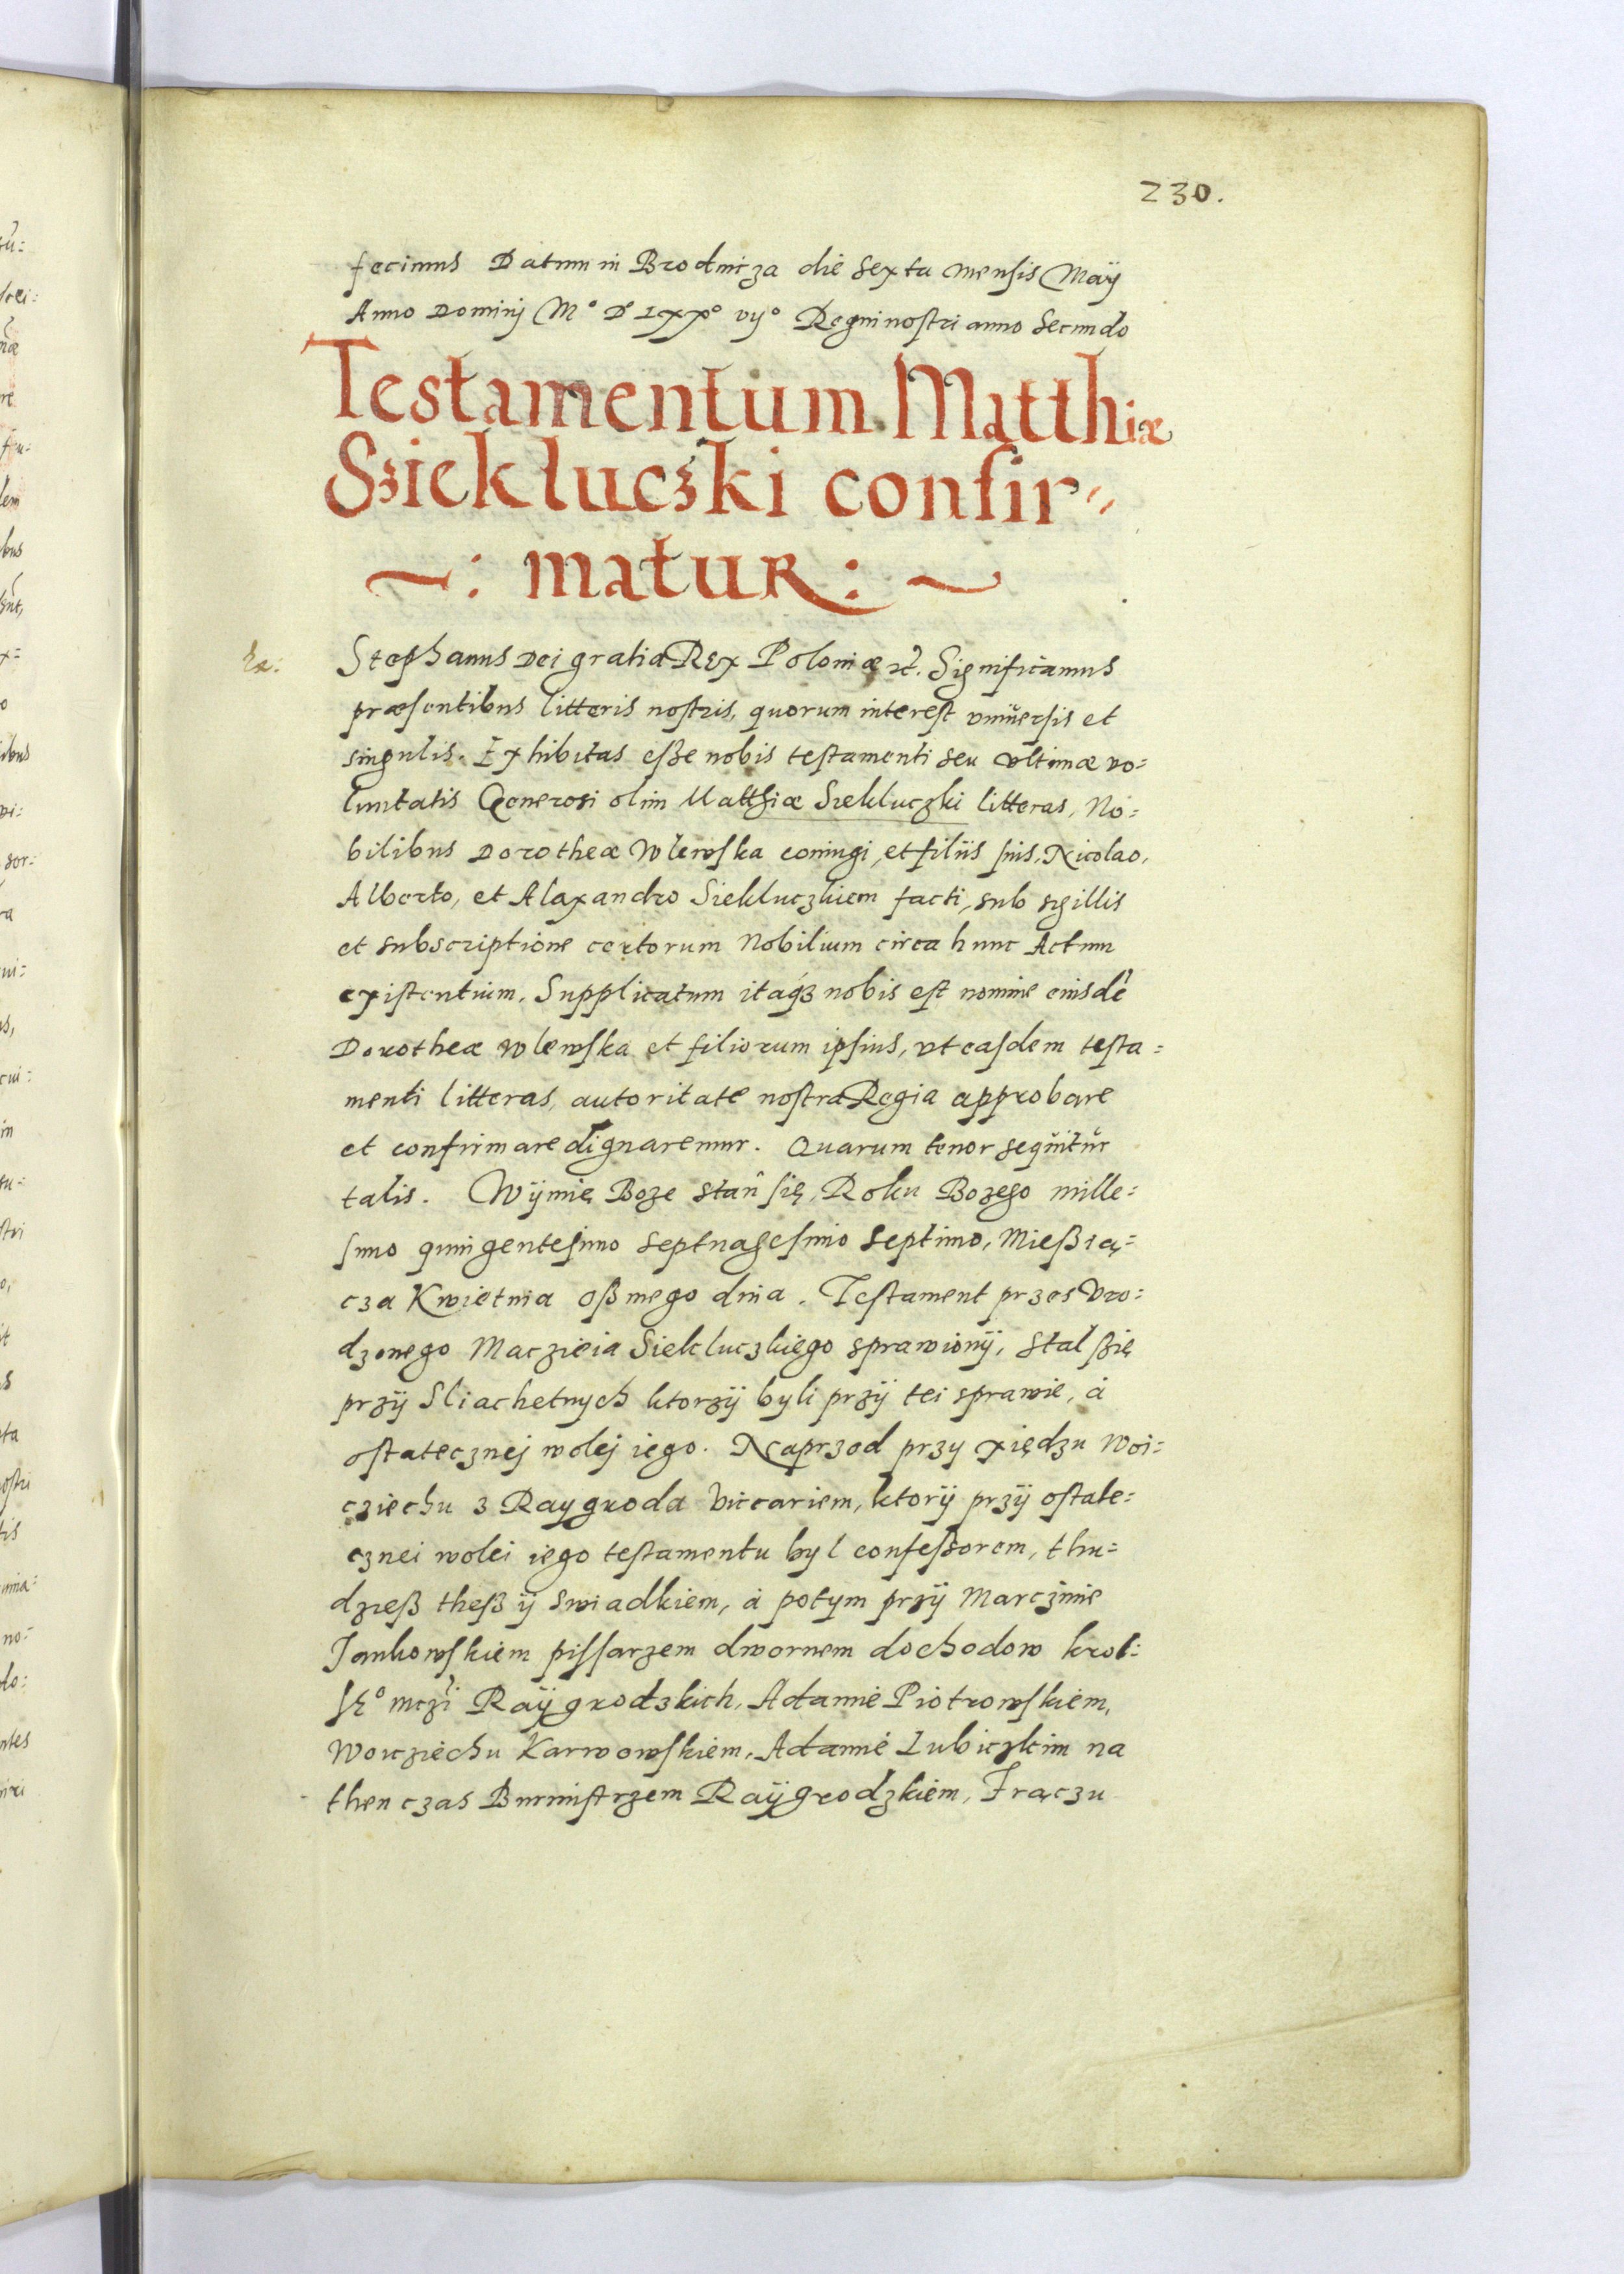 230.
fecimus Datum in Brodnicza die sexta mensis Maÿ
Anno Dominj M° D° LXX° vij° Regni nostri anno secundo
Testamentum Matthiæ
Szieklucżki confir〃
~: matur: ~
Ex:
Stephanus Dei gratia Rex Poloniæ etc. Significamus
præsentibus litteris nostris, quorum interest vniuersis et
singulis. Exhibitas eße nobis testamenti seu vltimæ vo=
luntatis Generosi olim Matthiæ Siekluczki litteras, No=
bilibus Dorotheæ Wlewska coniugi, et filiis suis, Nicolao,
Alberto, et Alaxandro Siekluczkiem facti, sub sigillis
et subscriptione certorum Nobilium circa hunc Actum
existentium. Supplicatum itaqȝ nobis est nomine eiusdē
Dorotheæ Wlewska et filiorum ipsius, vt easdem testa=
menti litteras, autoritate nostra Regia approbare
et confirmare dignaremur. Quarum tenor sequitur
talis. Wÿmię Boze stań się, Roku Bozego mille=
simo quingentesimo septuagesimo septimo, Mießią=
cza Kwietnia oßmego dnia. Testament przes Vro=
dzonego Maczieia Siekluczkiego sprawionÿ, stal ßię
przÿ Sliachetnych ktorzÿ byli przÿ tei sprawie, á
ostatecznej wolej iego. Naprzod przy xiędzu Woi=
cziechu z Raygroda Viccariem, ktorÿ przÿ ostate=
cznei wolei iego testamentu byl confeßorem, thu=
dzieß theß ÿ swiadkiem, á potym przÿ Marczinie
Jankowskiem pissarzem dwornem dochodow krol=
sk° mczi Raÿgrodzkich, Adamie Piotrowskiem,
Woicziechu Karwowskiem, Adamie Lubiczkim na
then czas Burmistrzem Raÿgrodzkiem, Frączu